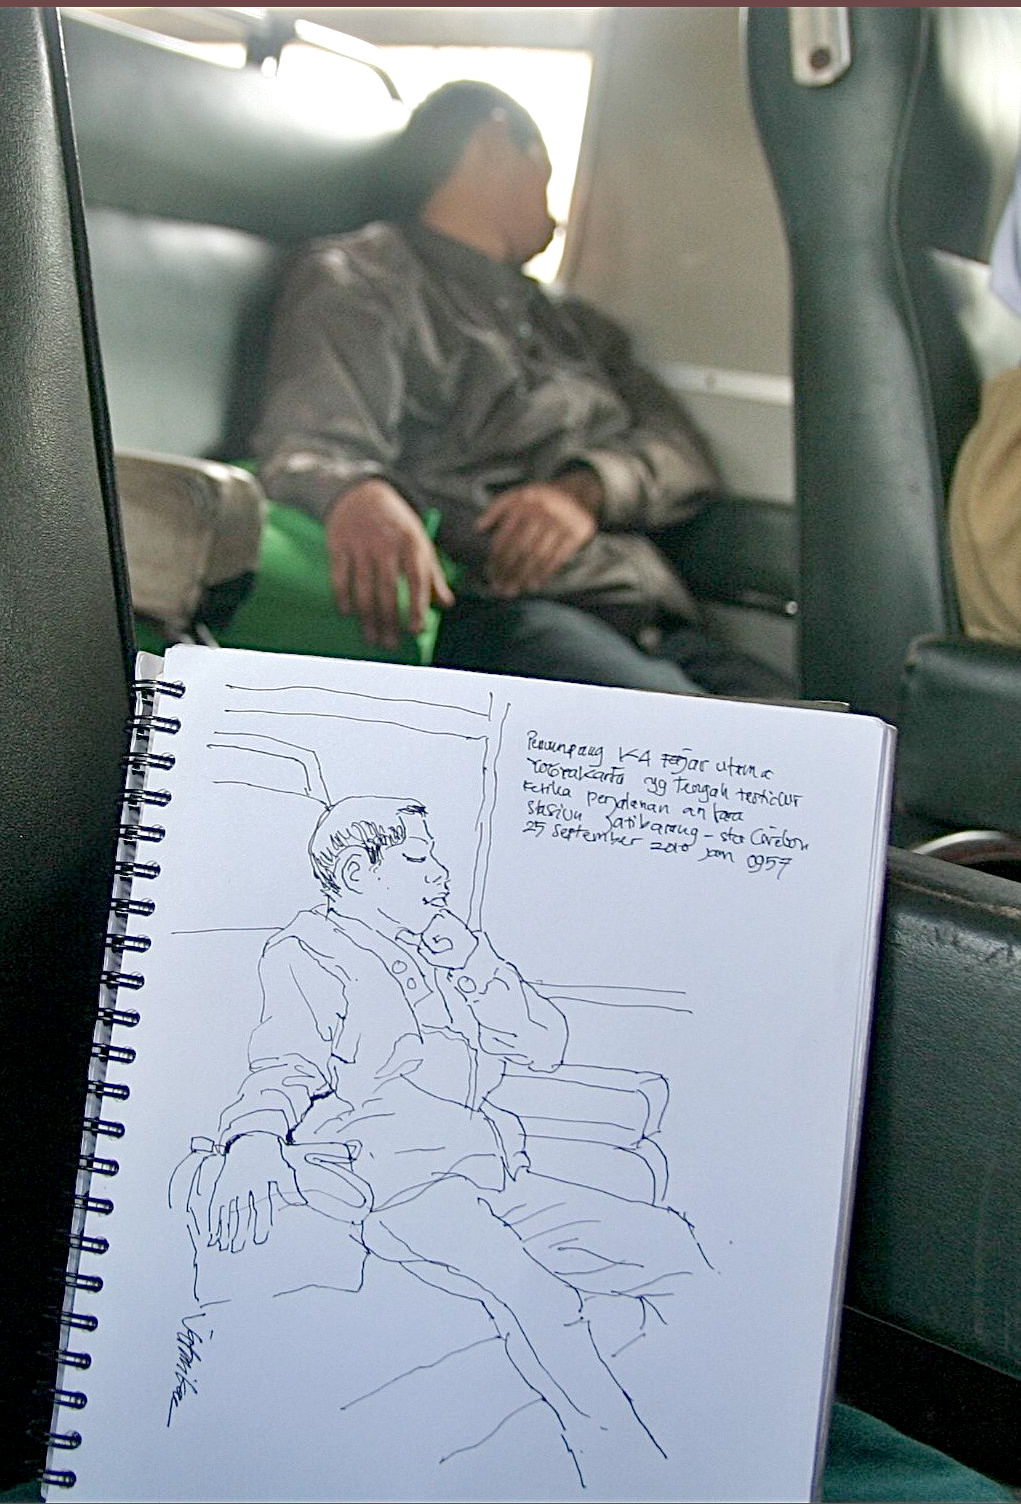 Penumpang KA Fajar utama
Yogyakarta yg Tengah tertidur
Ketika perjalanan antara
Stasiun Jatibarang - sta Cirebon
25 September 2010 jam 0957